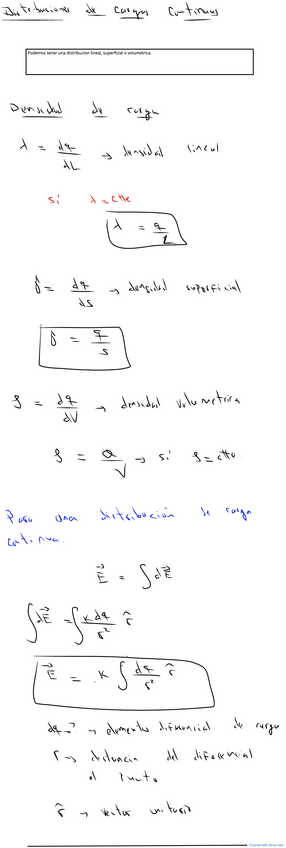 Distribuciones de Cargas Continuas
Podemos tener una distribucion lineal, superficial o volumetrica.
Densidad de carga
λ = dq/dL → densidad lineal
si λ = ctte
λ = q/L
δ = dq/ds → densidad superficial
δ = q/s
ρ = dq/dV → densidad volumetrica
ρ = Q/V → si ρ = ctte.
Para una distribución de carga
continua.
E⃗ = ∫ dE⃗
∫ dE⃗ = ∫ K dq/r² r̂
E⃗ = K ∫ dq/r² r̂
dq → elemento diferencial de carga
r → distancia del diferencial
al punto
r̂ → vector unitario